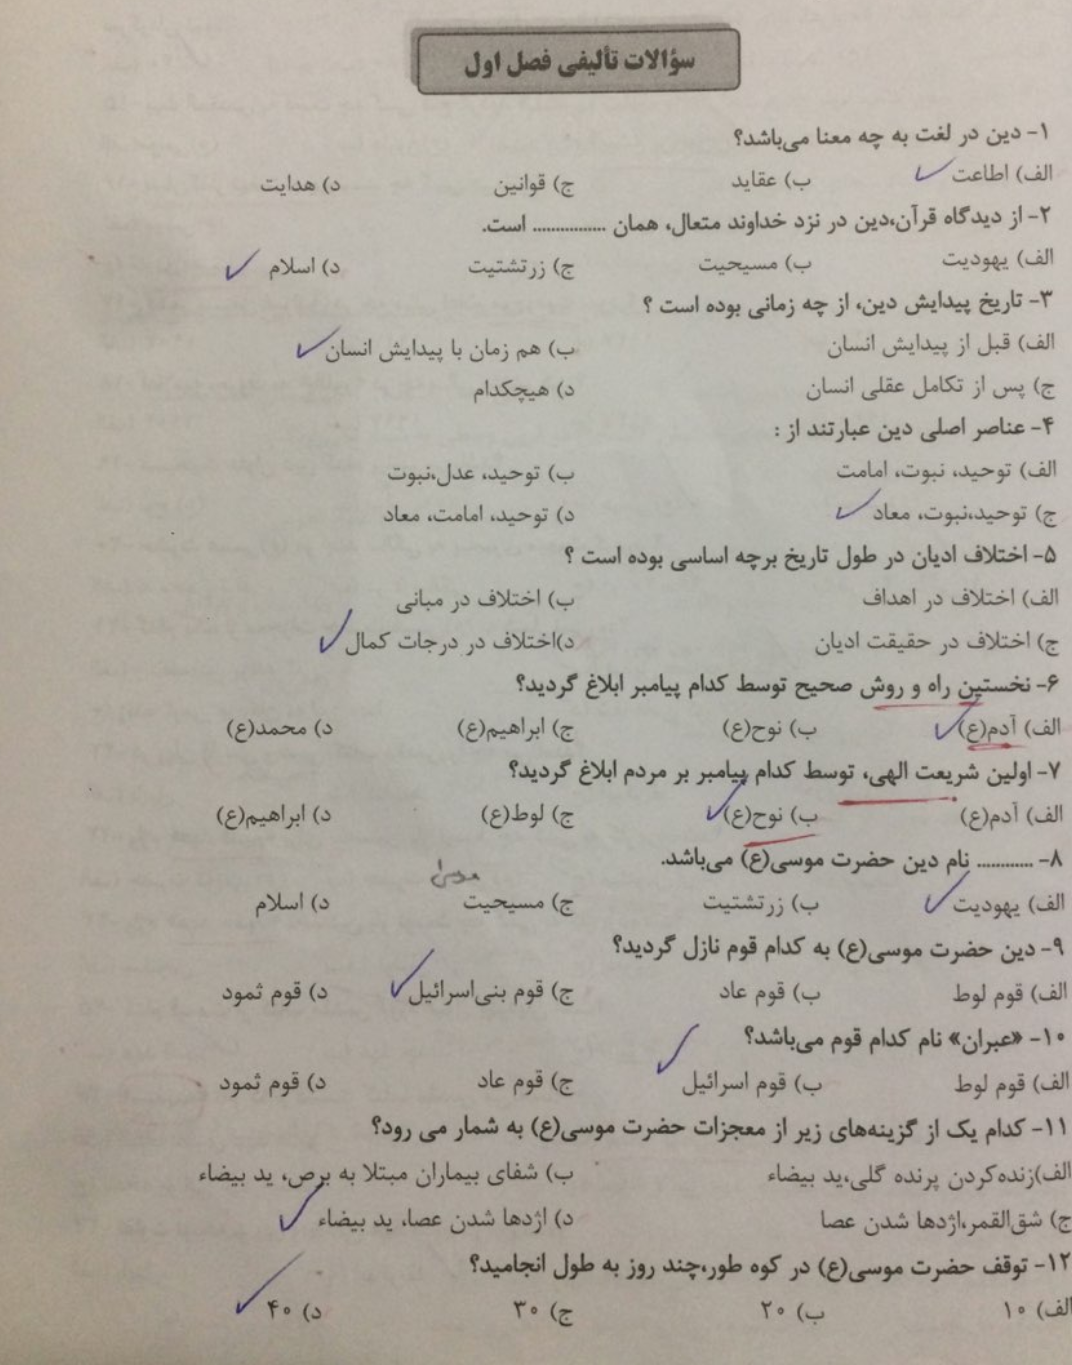 سؤالات تألیفی فصل اول
۱- دین در لغت به چه معنا می‌باشد؟
الف) اطاعت ب) عقاید ج) قوانین د) هدایت
۲- از دیدگاه قرآن،دین در نزد خداوند متعال، همان ............... است.
الف) یهودیت ب) مسیحیت ج) زرتشتیت د) اسلام
۳- تاریخ پیدایش دین، از چه زمانی بوده است ؟
الف) قبل از پیدایش انسان ب) هم زمان با پیدایش انسان
ج) پس از تکامل عقلی انسان د) هیچکدام
۴- عناصر اصلی دین عبارتند از :
الف) توحید، نبوت، امامت ب) توحید، عدل،نبوت
ج) توحید،نبوت، معاد د) توحید، امامت، معاد
۵- اختلاف ادیان در طول تاریخ برچه اساسی بوده است ؟
الف) اختلاف در اهداف ب) اختلاف در مبانی
ج) اختلاف در حقیقت ادیان د)اختلاف در درجات کمال
۶- نخستین راه و روش صحیح توسط کدام پیامبر ابلاغ گردید؟
الف) آدم(ع) ب) نوح(ع) ج) ابراهیم(ع) د) محمد(ع)
۷- اولین شریعت الهی، توسط کدام پیامبر بر مردم ابلاغ گردید؟
الف) آدم(ع) ب) نوح(ع) ج) لوط(ع) د) ابراهیم(ع)
۸- ............ نام دین حضرت موسی(ع) می‌باشد.
موسی
الف) یهودیت ب) زرتشتیت ج) مسیحیت د) اسلام
۹- دین حضرت موسی(ع) به کدام قوم نازل گردید؟
الف) قوم لوط ب) قوم عاد ج) قوم بنی‌اسرائیل د) قوم ثمود
۱۰- «عبران» نام کدام قوم می‌باشد؟
الف) قوم لوط ب) قوم اسرائیل ج) قوم عاد د) قوم ثمود
۱۱- کدام یک از گزینه‌های زیر از معجزات حضرت موسی(ع) به شمار می رود؟
الف)زنده‌کردن پرنده گلی،ید بیضاء ب) شفای بیماران مبتلا به برص، ید بیضاء
ج) شق‌القمر،اژدها شدن عصا د) اژدها شدن عصا، ید بیضاء
۱۲- توقف حضرت موسی(ع) در کوه طور،چند روز به طول انجامید؟
الف) ۱۰ ب) ۲۰ ج) ۳۰ د) ۴۰